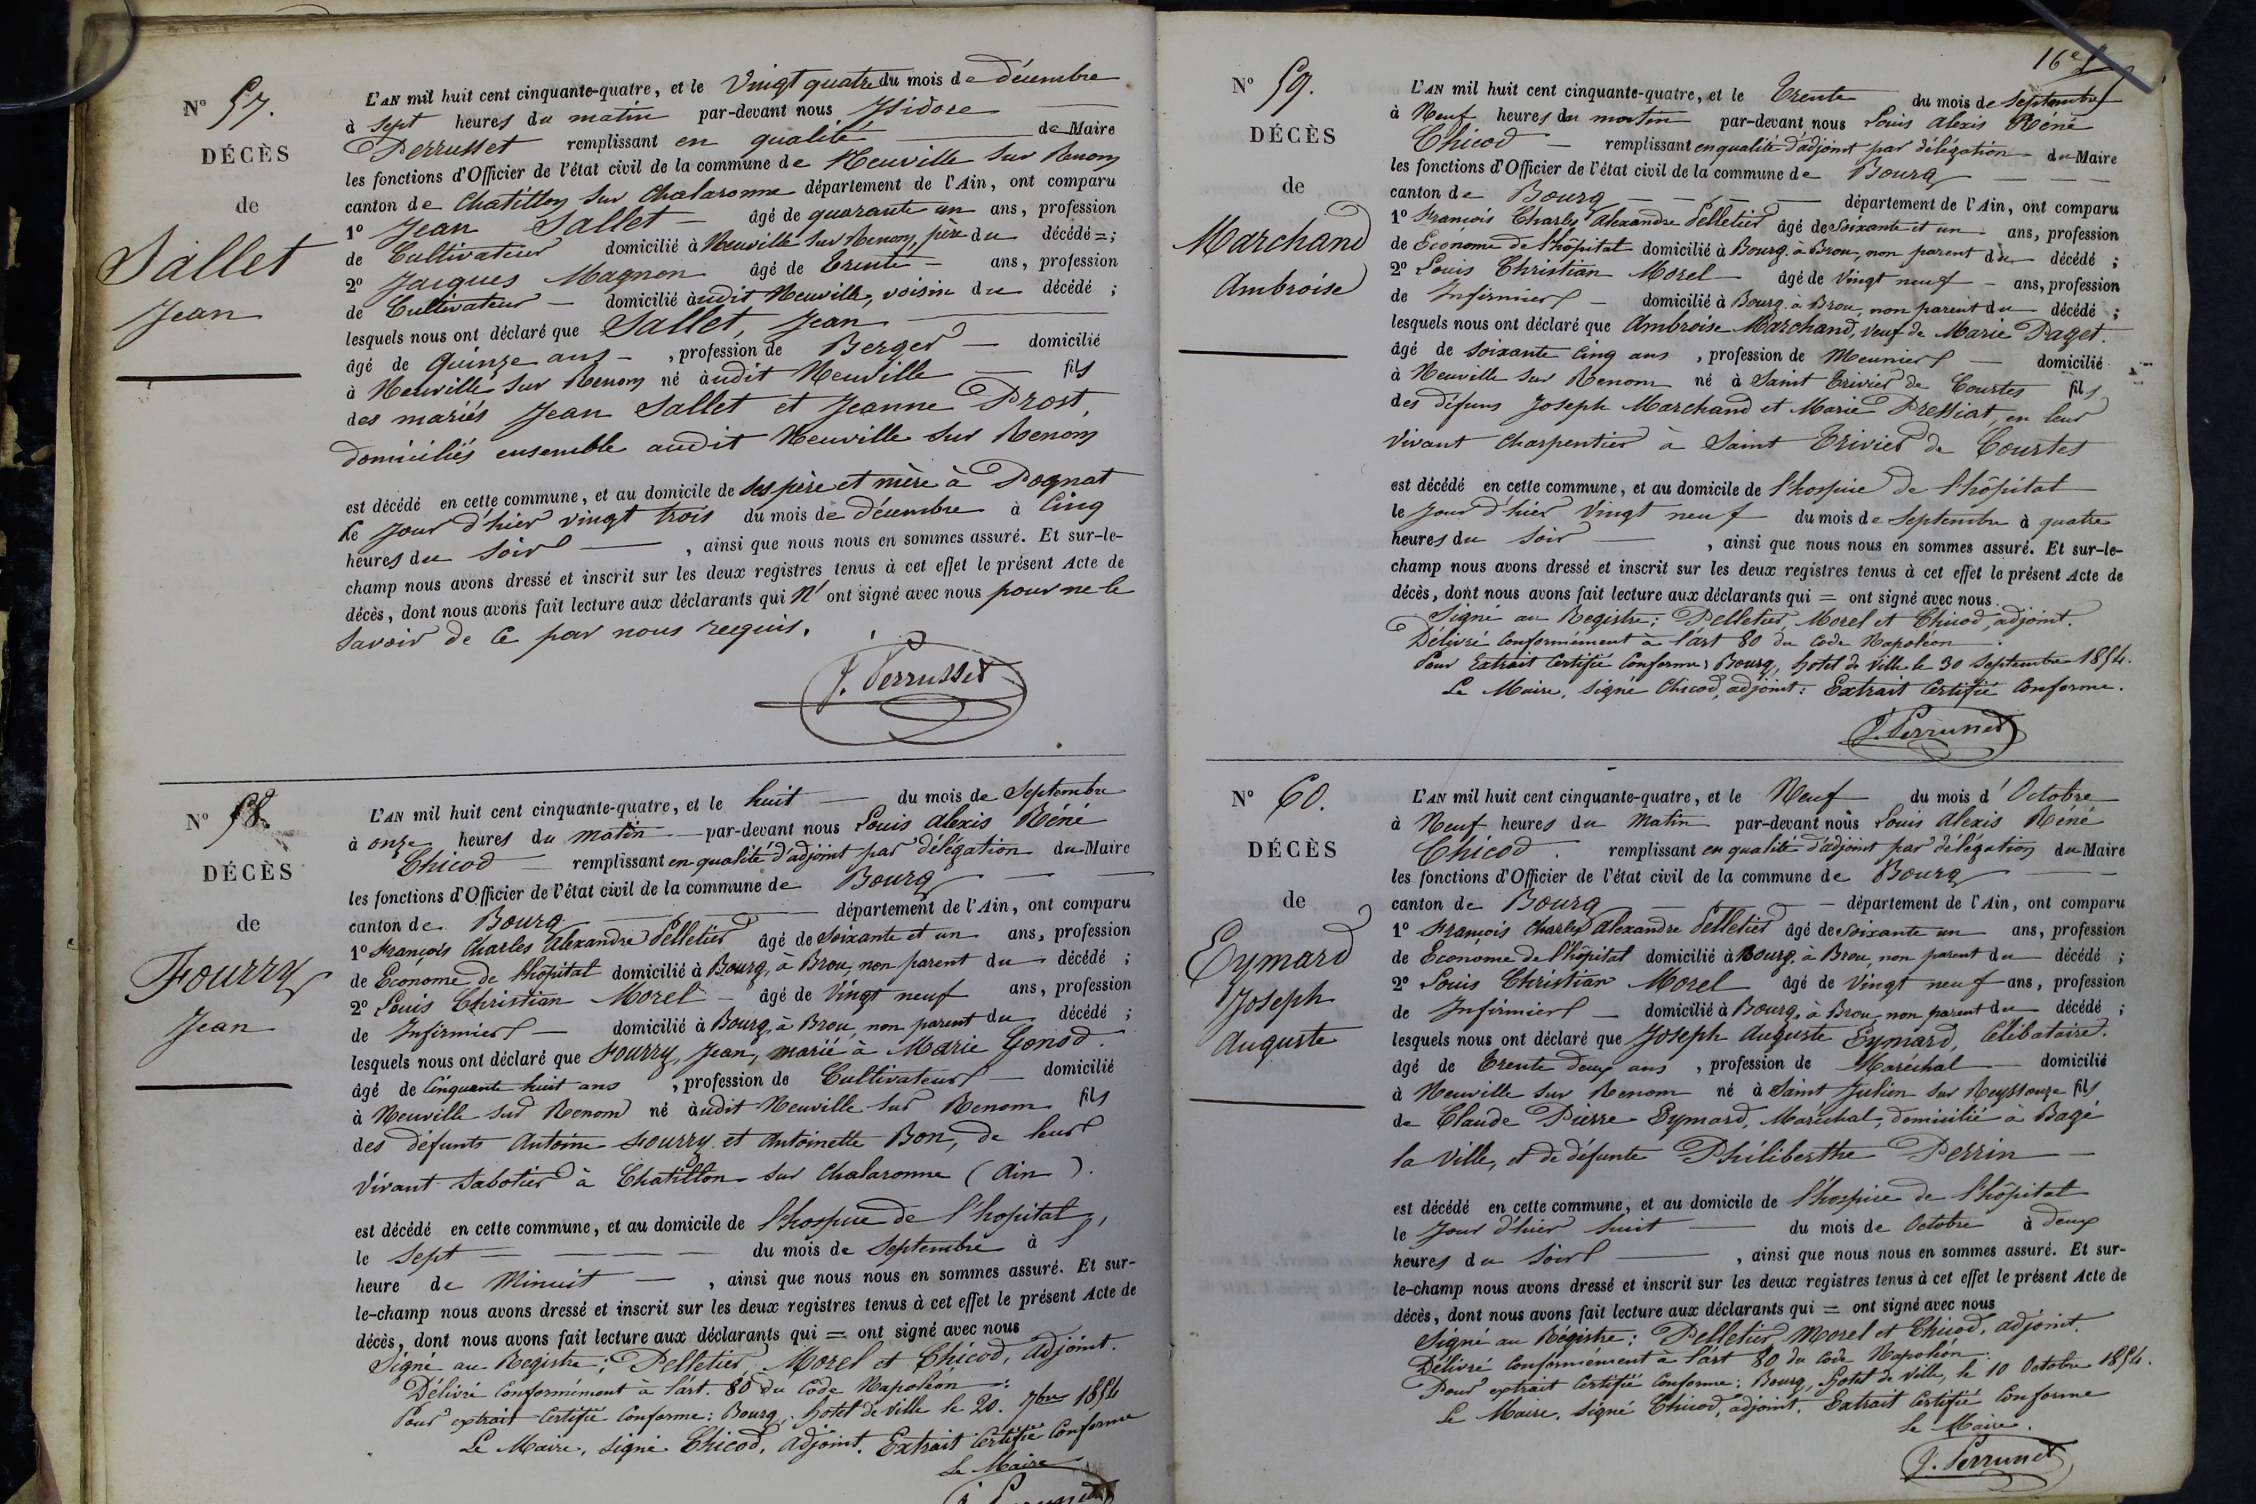 N° 57.
DÉCÈS
de
Sallet
Jean
L'AN mil huit cent cinquante-quatre, et le Vingt quatre du mois de décembre
à sept heures du matin par-devant nous Isidore
Perrusset remplissant en qualité de Maire
les fonctions d'Officier de l'état civil de la commune de Neuville sur Renom
canton de Chatillon sur Chalaronne département de l'Ain, ont comparu
1° Jean Sallet âgé de quarante un ans, profession
de Cultivateur domicilié à Neuville sur Renom, père du décédé = ;
2° Jacques Magnon âgé de trente ans, profession
de Cultivateur domicilié à udit Neuville, voisin du décédé ;
lesquels nous ont déclaré que Sallet, Jean
âgé de quinze ans , profession de Berger domicilié
à Neuville sur Renom né à udit Neuville fils
des mariés Jean Sallet et Jeanne Prost,
domiciliés ensemble audit Neuville sur Renom
est décédé en cette commune, et au domicile de ses père et mère à Pognat
le jour d'hier vingt trois du mois de décembre à Cinq
heures du soir , ainsi que nous nous en sommes assuré. Et sur-le-
champ nous avons dressé et inscrit sur les deux registres tenus à cet effet le présent Acte de
décès, dont nous avons fait lecture aux déclarants qui n' ont signé avec nous pour ne le
savoir de ce par nous requis.
J. Perrusset
N° 58.
DÉCÈS
de
Fourry
Jean
L'AN mil huit cent cinquante-quatre, et le huit du mois de Septembre
à onze heures du matin par-devant nous Louis Alexis Réné
Chicod remplissant en qualité d'adjoint par délégation du Maire
les fonctions d'Officier de l'état civil de la commune de Bourg
canton de Bourg département de l'Ain, ont comparu
1° François Charles Alexandre Pelletier âgé de soixante et un ans, profession
de Econome de l'hôpital domicilié à Bourg, à Brou, non parent du décédé ;
2° Louis Christian Morel âgé de Vingt neuf ans, profession
de Infirmier domicilié à Bourg, à Brou, non parent du décédé ;
lesquels nous ont déclaré que Fourry, Jean, marié à Marie Gonod.
âgé de Cinquante huit ans , profession de Cultivateur domicilié
à Neuville sur Renom né à udit Neuville sur Renom fils
des défunts Antoine Fourry et Antoinette Bon, de leur
vivant sabotier à Chatillon sur Chalaronne (Ain).
est décédé en cette commune, et au domicile de l'hospice de l'hopital,
le sept du mois de Septembre à
heure de Minuit , ainsi que nous nous en sommes assuré. Et sur-
le-champ nous avons dressé et inscrit sur les deux registres tenus à cet effet le présent Acte de
décès, dont nous avons fait lecture aux déclarants qui = ont signé avec nous
Signé au Registre : Pelletier, Morel et Chicod, adjoint.
Délivré Conformément à l'art. 80 du Code Napoléon :
Pour extrait Certifié Conforme : Bourg, hotel de ville le 20. 7bre 1854
Le Maire, signé Chicod, adjoint. Extrait Certifié Conforme
Le Maire
16e
N° 59.
DÉCÈS
de
Marchand
Ambroise
L'AN mil huit cent cinquante-quatre, et le Trente du mois de Septembre
à Neuf heures du matin par-devant nous Louis Alexis Réné
Chicod remplissant en qualité d'adjoint par délégation du Maire
les fonctions d'Officier de l'état civil de la commune de Bourg
canton de Bourg département de l'Ain, ont comparu
1° François Charles Alexandre Pelletier âgé de soixante et un ans, profession
de Econome de l'hôpital domicilié à Bourg, à Brou, non parent du décédé ;
2° Louis Christian Morel âgé de Vingt neuf ans, profession
de Infirmier domicilié à Bourg, à Brou, non parent du décédé ;
lesquels nous ont déclaré que Ambroise Marchand, veuf de Marie Paget.
âgé de soixante cinq ans , profession de Meunier domicilié
à Neuville sur Renom né à Saint Trivier de Courtes fils
des défuns Joseph Marchand et Marie Pressiat, en leur
vivant Charpentier à Saint Trivier de Courtes
est décédé en cette commune, et au domicile de l'hospice de l'hôpital
le jour d'hier Vingt neuf du mois de Septembre à quatre
heures du soir , ainsi que nous nous en sommes assuré. Et sur-le-
champ nous avons dressé et inscrit sur les deux registres tenus à cet effet le présent Acte de
décès, dont nous avons fait lecture aux déclarants qui = ont signé avec nous
Signé au Registre : Pelletier, Morel et Chicod, adjoint.
Délivré Conformément à l'art 80 du Code Napoléon
Pour Extrait Certifié Conforme : Bourg, hotel de ville le 30 Septembre 1854.
Le Maire, signé Chicod, adjoint : Extrait Certifié Conforme.
J. Perrusset
N° 60.
DÉCÈS
de
Eymard
Joseph
Auguste
L'AN mil huit cent cinquante-quatre, et le Neuf du mois d'Octobre
à Neuf heures du Matin par-devant nous Louis Alexis Réné
Chicod. remplissant en qualité d'adjoint par délégation du Maire
les fonctions d'Officier de l'état civil de la commune de Bourg
canton de Bourg département de l'Ain, ont comparu
1° François Charles Alexandre Pelletier âgé de soixante un ans, profession
de Econome de l'hôpital domicilié à Bourg, à Brou, non parent du décédé ;
2° Louis Christian Morel âgé de Vingt neuf ans, profession
de Infirmier domicilié à Bourg, à Brou, non parent du décédé ;
lesquels nous ont déclaré que Joseph Auguste Eymard, Célibataire.
âgé de Trente deux ans , profession de Maréchal domicilié
à Neuville sur Renom né à Saint Julien sur Reyssouze fils
de Claude Pierre Eymard, Maréchal, domicilié à Bagé
la Ville, et de défunte Philiberthe Perrin
est décédé en cette commune, et au domicile de l'hospice de l'hôpital
le jour d'hier huit du mois de Octobre à deux
heures du soir , ainsi que nous nous en sommes assuré. Et sur-
le-champ nous avons dressé et inscrit sur les deux registres tenus à cet effet le présent Acte de
décès, dont nous avons fait lecture aux déclarants qui = ont signé avec nous
Signé au Régistre : Pelletier, Morel et Chicod, adjoint.
Délivré Conformément à l'art 80 du Code Napoléon.
Pour extrait Certifié Conforme : Bourg, hotel de Ville, le 10 Octobre 1854.
Le Maire, signé Chicod, adjoint Extrait Certifié Conforme
Le Maire.
J. Perrusset